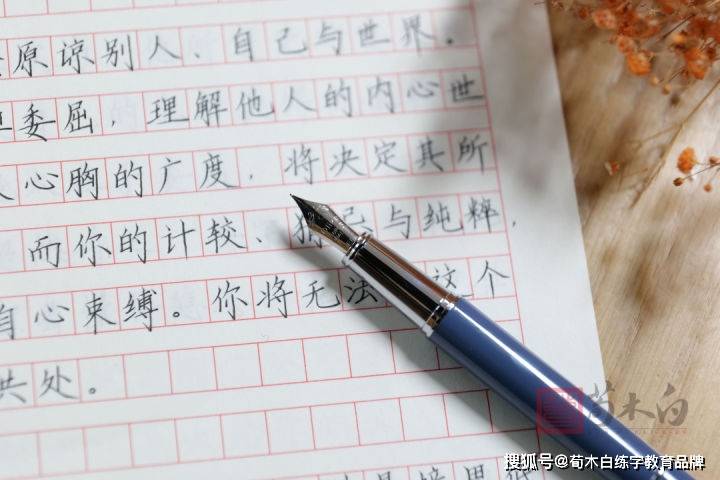 原谅别人、自己与世界。
委屈，理解他人的内心世
心胸的广度，将决定其所
而你的计较、猜忌与纯粹，
自心束缚。你将无法 这个
共处。
荀木白
搜狐号@荀木白练字教育品牌